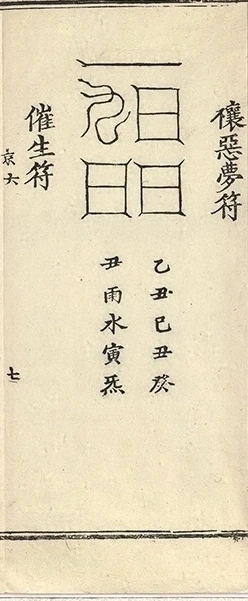 禳惡夢符
乙丑巳丑癸
丑雨水寅炁
催生符
七